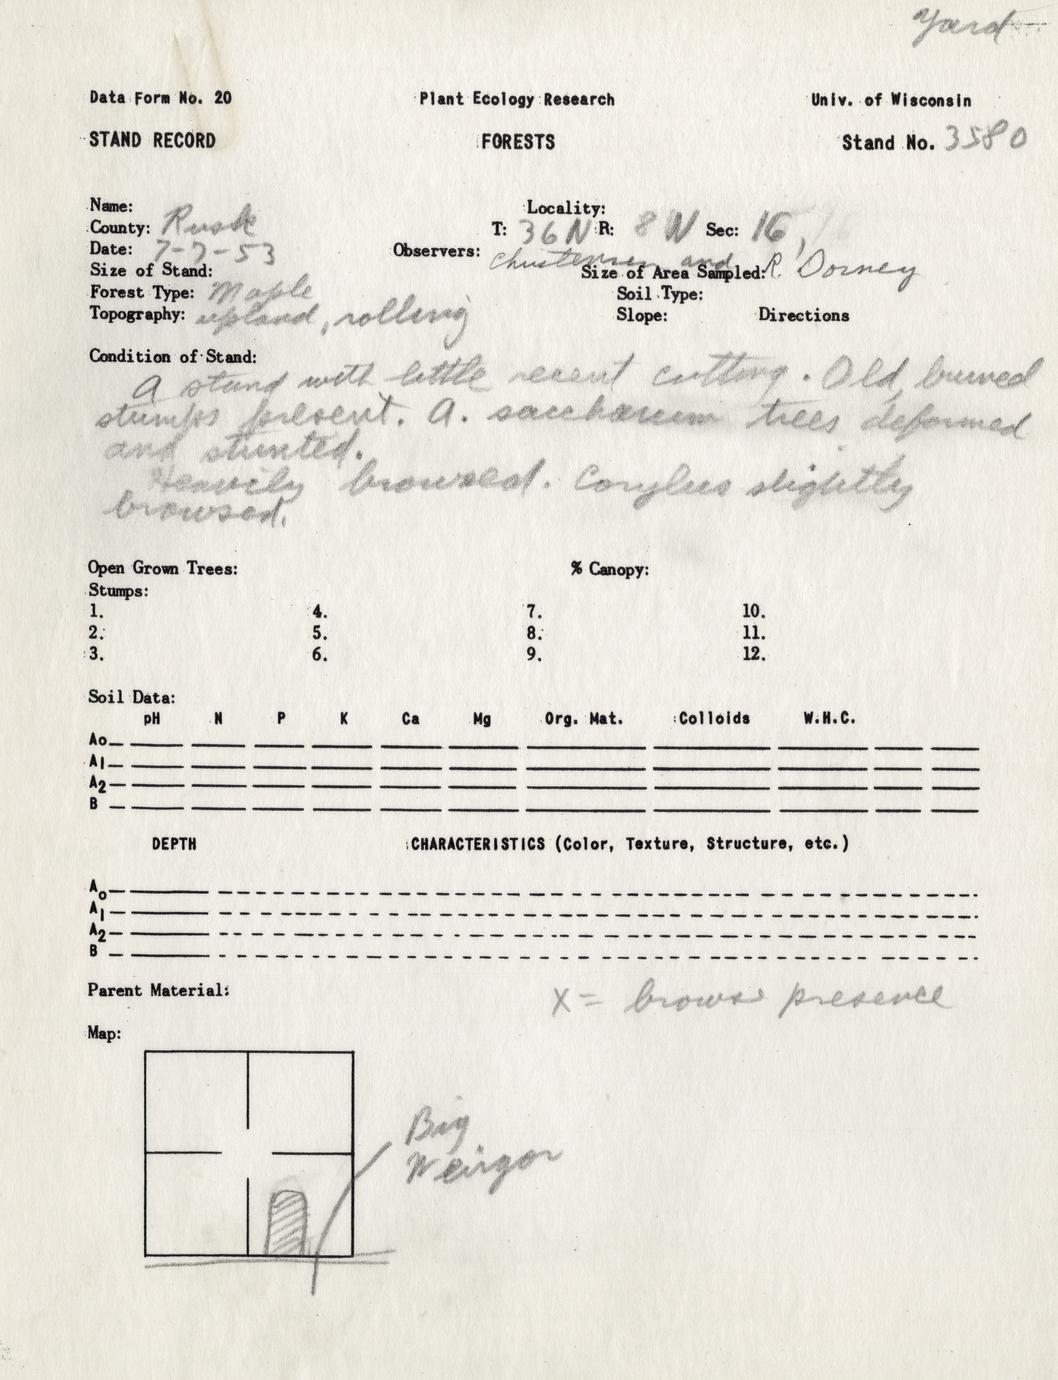 Yard
Data Form No. 20 Plant Ecology Research Univ. of Wisconsin
STAND RECORD FORESTS Stand No. 3580
Name: Locality:
County: Rusk T: 36N R: 8W Sec: 16,
Date: 7-7-53 Observers: Christensen and R. Dorney
Size of Stand: Size of Area Sampled:
Forest Type: Maple Soil Type:
Topography: upland, rolling Slope: Directions
Condition of Stand:
A stand with little recent cutting. Old, burned
stumps present. A. saccharum trees deformed
and stunted.
Heavily browsed. Corylus slightly
browsed.
Open Grown Trees: % Canopy:
Stumps:
1. 4. 7. 10.
2. 5. 8. 11.
3. 6. 9. 12.
Soil Data:
pH N P K Ca Mg Org. Mat. Colloids W.H.C.
Ao
A1
A2
B
DEPTH CHARACTERISTICS (Color, Texture, Structure, etc.)
Ao
A1
A2
B
Parent Material:
X = browse presence
Map:
Big
Weirgor